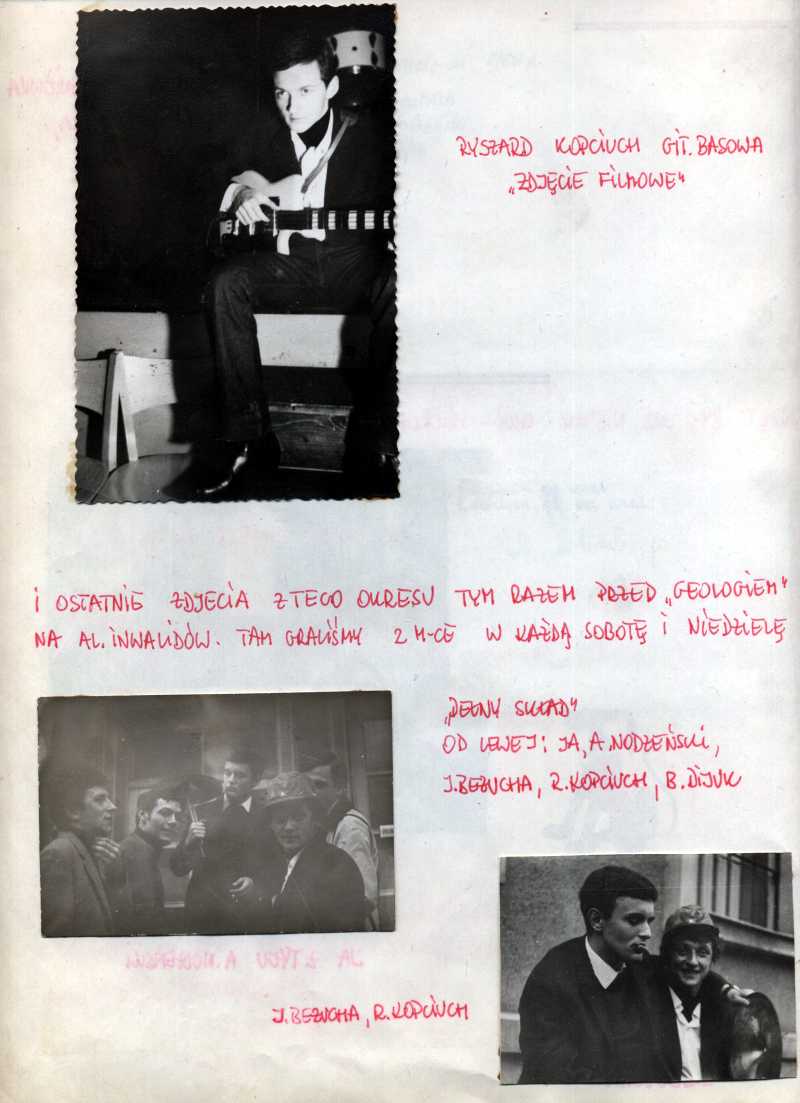 RYSZARD KOPCIUCH GIT. BASOWA
„ZDJĘCIE FILMOWE"
I OSTATNIE ZDJECIA Z TEGO OKRESU TYM RAZEM PRZED „GEOLOGIEM"
NA AL. INWALIDÓW. TAM GRALIŚMY 2 M-CE W KAŻDĄ SOBOTĘ I NIEDZIELĘ
„PEŁNY SKŁAD"
OD LEWEJ: JA, A. NODZEŃSKI,
J. BEZUCHA, R. KOPCIUCH, B. DIJUK
J. BEZUCHA, R. KOPCIUCH